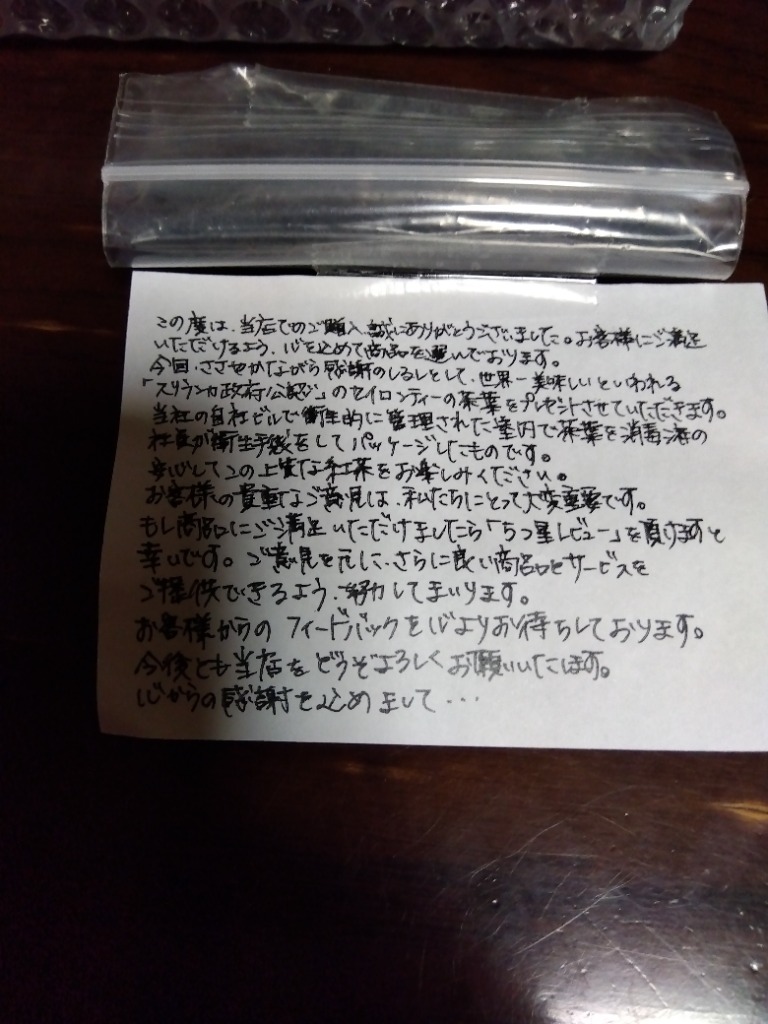 この度は、当店でのご購入、誠にありがとうございました。お客様にご満足
いただけるよう、心を込めて商品を選んでおります。
今回、ささやかながら感謝のしるしとして、世界一美味しいといわれる
「スリランカ政府公認」のセイロンティーの茶葉をプレゼントさせていただきます。
当社の自社ビルで衛生的に管理された室内で茶葉を消毒済の
社員が衛生手袋をしてパッケージしたものです。
安心してこの上質な紅茶をお楽しみください。
お客様の貴重なご意見は、私たちにとって大変重要です。
もし商品にご満足いただけましたら「5つ星レビュー」を頂けますと
幸いです。ご意見を元に、さらに良い商品とサービスを
ご提供できるよう、努力してまいります。
お客様からのフィードバックを心よりお待ちしております。
今後とも当店をどうぞよろしくお願いいたします。
心からの感謝を込めまして・・・